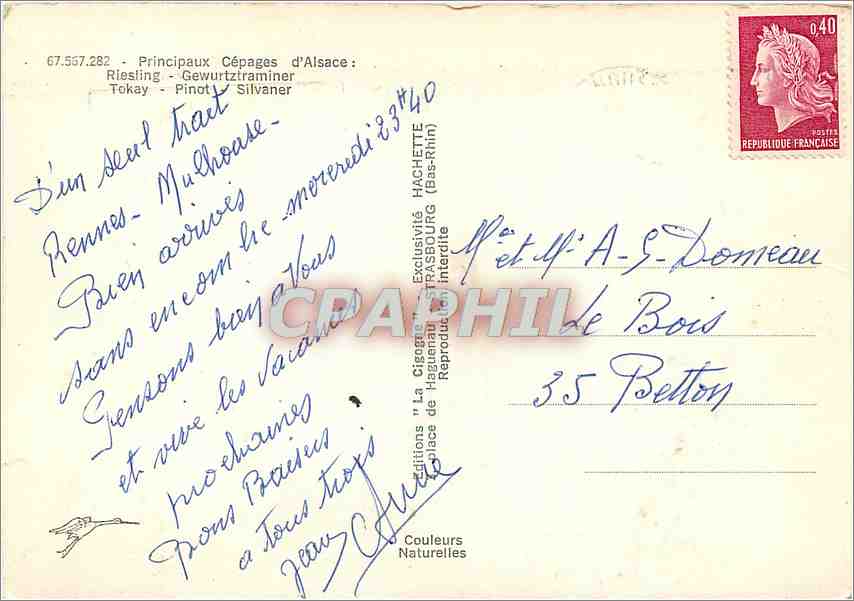 67.567.282 - Principaux Cépages d'Alsace :
Riesling - Gewurtztraminer
Tokay - Pinot - Silvaner
D'un seul trait
Rennes - Mulhouse -
Bien arrivés
sans encombre mercredi 23H40
Pensons bien à Vous
et vive les Vacances
prochaines
Bons Baisers
a tous trois
Jean
Editions "La Cigogne" - Exclusivité HACHETTE
place de Haguenau - STRASBOURG (Bas-Rhin)
Reproduction interdite
Couleurs
Naturelles
0,40
POSTES
REPUBLIQUE FRANÇAISE
Me et Mr A-G-Domeau
Le Bois
35 Betton
CPAPHIL